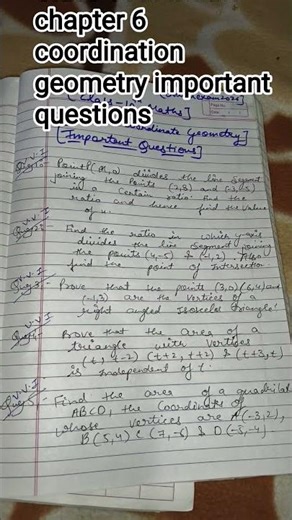 chapter 6
coordination
geometry important
questions
[Class-10th Maths]
Coordinate Geometry]
[Important Questions]
V.V.I
Point P(x, divides the line segment
joining the Points (2,8) and
in a certain ratio. Find the
ratio and hence find the value
of x.
V.V.I
Find the ratio in which y-axis
divides the line segment joining
the points (4,-5) & (-1,2). Also
find the point of Intersection
V.V.I
Prove that the points (3,0) (6,4) and
(-1,3) are the vertices of a
right angled Isosceles triangle.
V.V.I
Prove that the area of a
triangle with vertices
(t, t-2) (t+2, t+2) & (t+3,t)
is independent of t.
V.V.I
Find the area of a quadrilat
ABCD, the coordinate of
whose vertices are A(-3,2),
B(5,4) C(7,-6) & D(-5,-4)